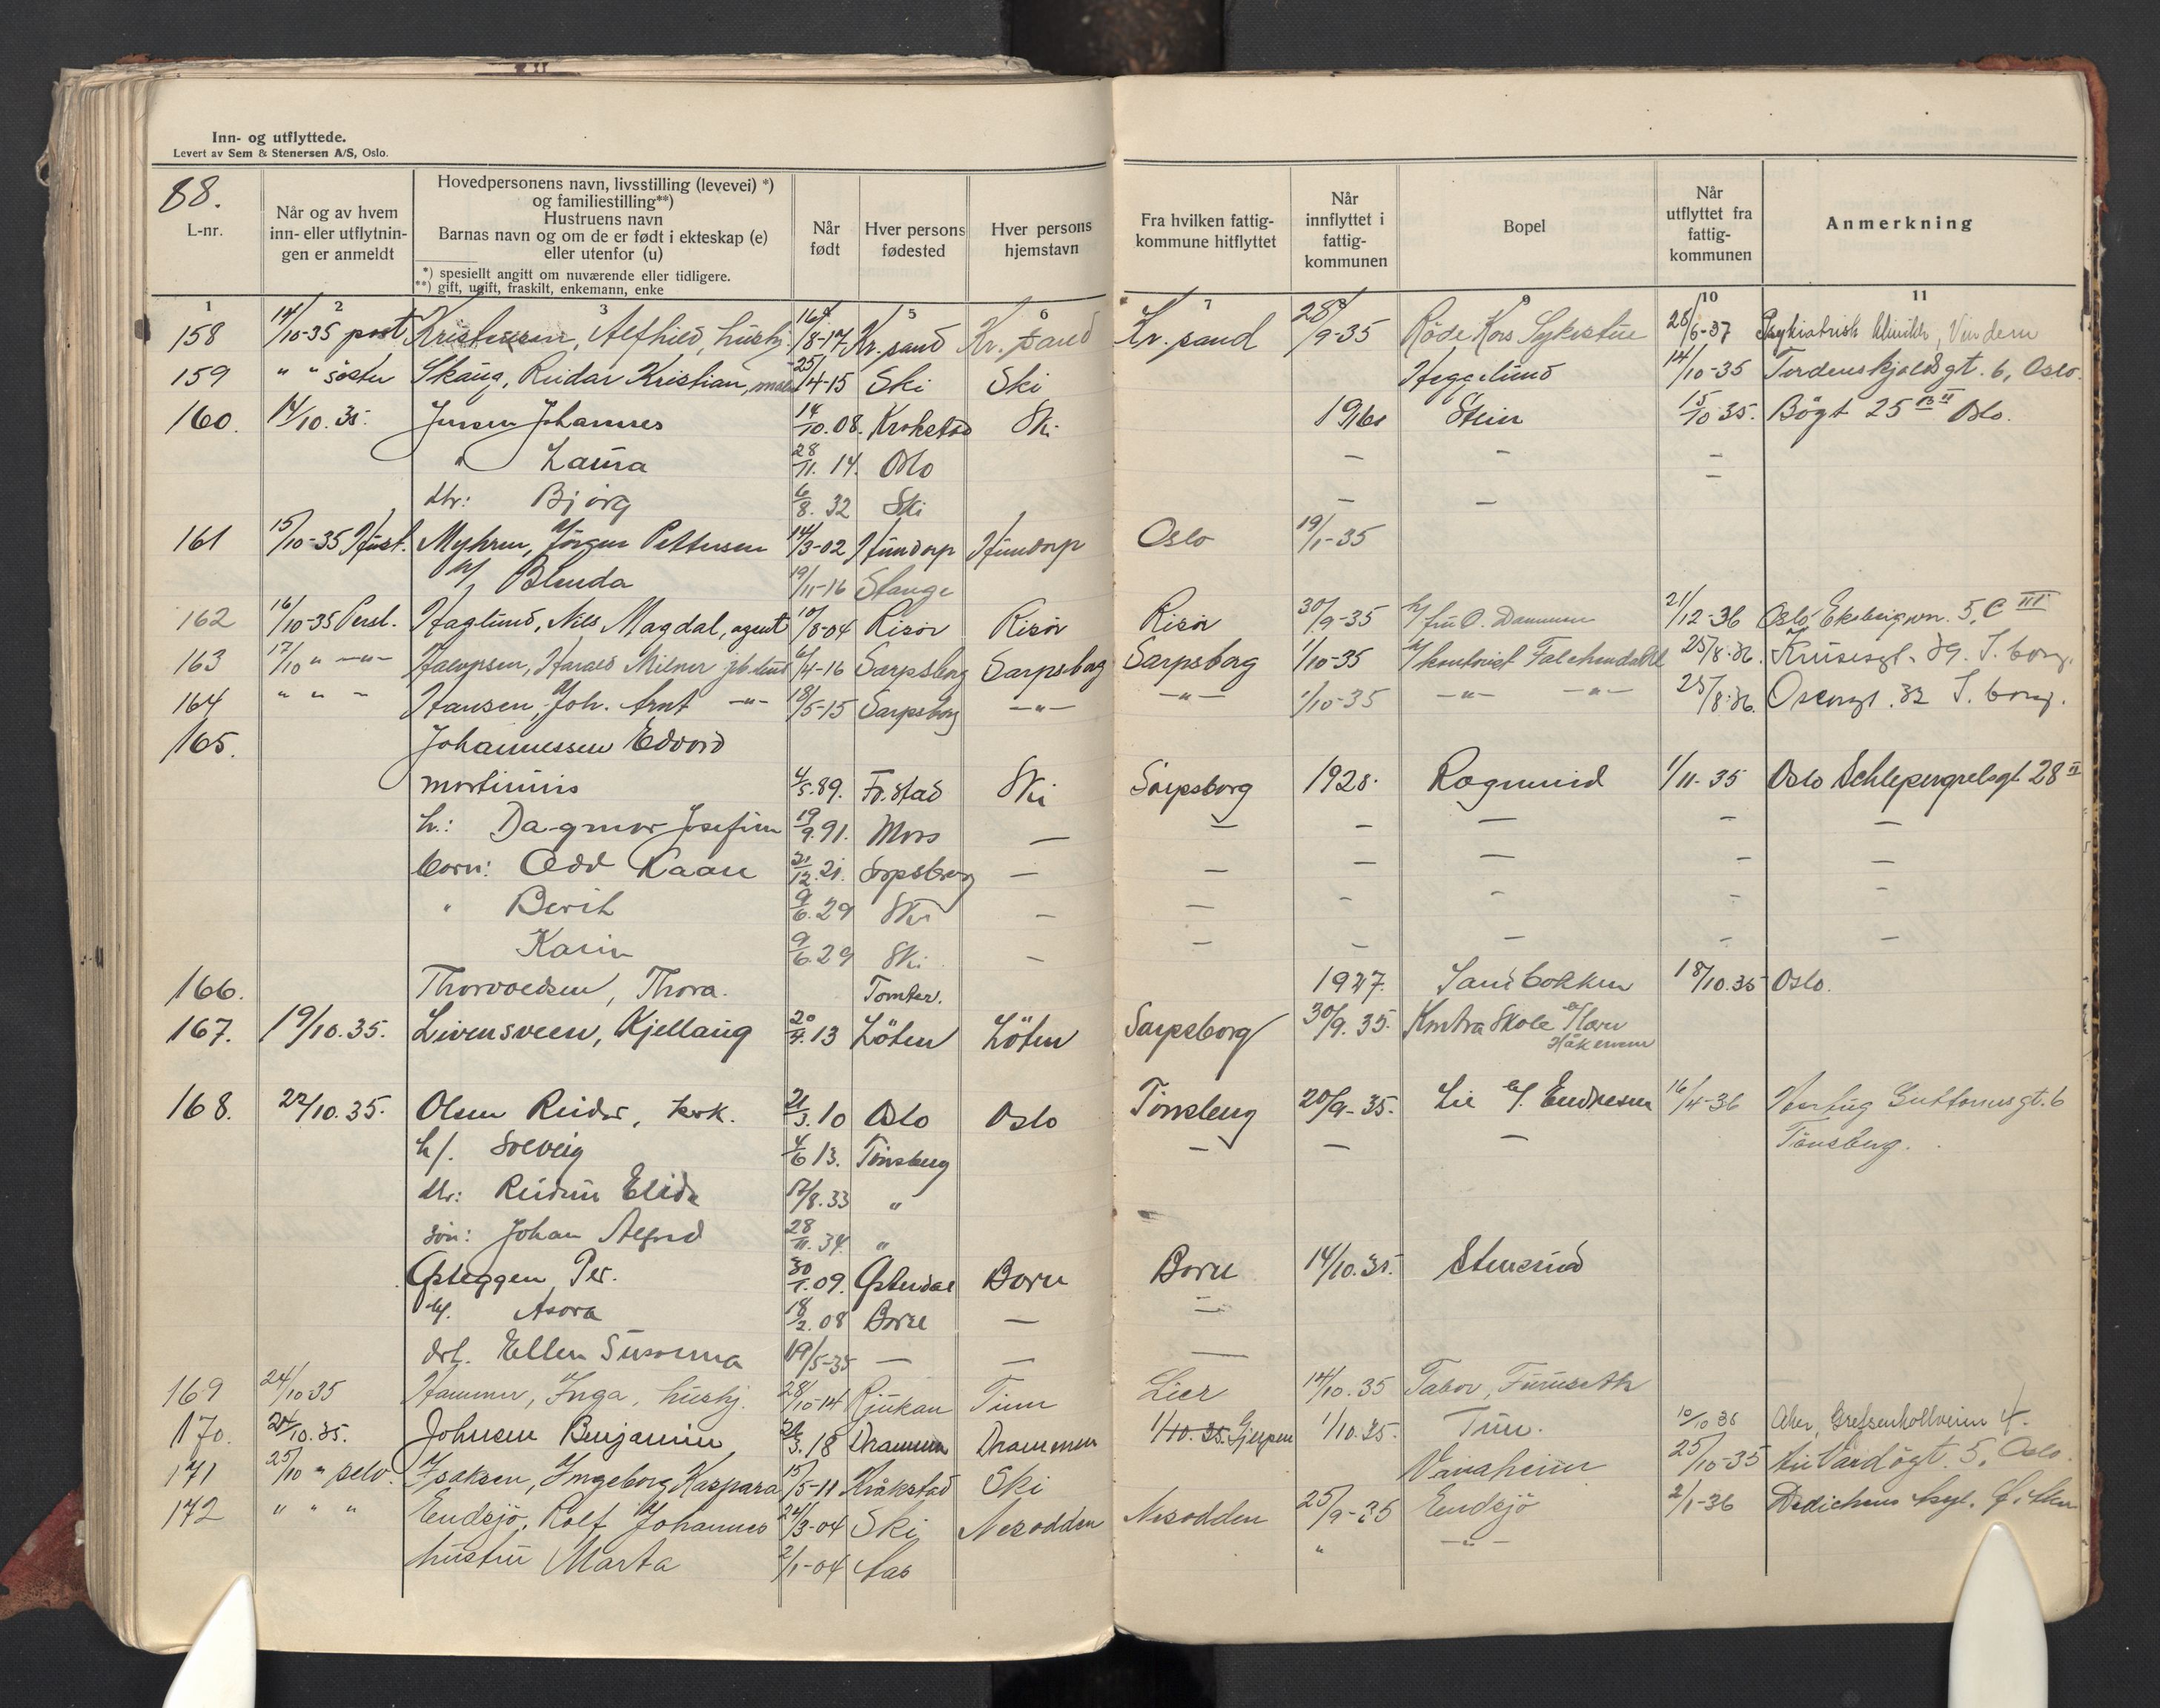 Inn- og utflyttede.
Levert av Sem & Stenersen A/S, Oslo.
88.
L-nr.
Når og av hvem inn- eller utflytnin-gen er anmeldt
Hovedpersonens navn, livsstilling (levevei) *)
og familiestilling**)
Hustruens navn
Barnas navn og om de er født i ekteskap (e)
eller utenfor (u)
*) spesiellt angitt om nuværende eller tidligere.
**) gift, ugift, fraskilt, enkemann, enke
Når født
Hver persons fødested
Hver persons hjemstavn
Fra hvilken fattig-kommune hitflyttet
Når innflyttet i fattig-kommunen
Bopel
Når utflyttet fra fattig-kommunen
Anmerkning
1 2 3 5 6 7 8 9 10 11
158 14/10-35 post Kristensen, Alfhild, hushj. 16/8-17 Kr.sand Kr.sand Kr.sand 28/9-35 Röde Kors Sykestue 28/6-37 Psykiatrisk klinikk, Vindern
159 " " söster Skaug, Reidar Kristian, 25/4-15 Ski Ski Heggelund 14/10-35 Tordenskjoldsgt. 6, Oslo.
160. 14/10.35. Jensen Johannes 14/10.08. Krokstad Ski Stein 15/10 35. Bögt 25 Oslo.
" Laura 28/11. 14. Oslo — — —
dtr: Bjørg 6/8. 32 Ski — —
161 15/10-35 Myhren, Jörgen Pettersen 14/3-02 Hundorp Hundorp Oslo 19/1-35
h/ Blenda 19/11-16 Stange
162 16/10-35 Persl. Haglund, Nils Magdal, agent 10/8-04 Risör Risör Risör 30/9-35 h/ fru O. Dammen 21/12-36 Oslo Ekebergvn. 5, C III
163 17/10 " —"— Harald Milner 6/4-16 Sarpsborg Sarpsborg Sarpsborg 1/10-35 h/ kontorist 25/8-36. Krusesgt. 29. S.borg.
164 " " " Hansen, Joh. Arnt —"— 18/5-15 Sarpsborg —"— —"— 1/10-35 —"— —"— 25/8-36. Oscarsgt. 32 S.borg.
165. Johannessen Edvard
Martinius 4/5.89. Fr.stad Ski Sarpsborg 1928. Rogneslid 1/11-35 Oslo Schleppegrelsgt 28 II
h.: Dagmar Josefine 19/9.91. Moss — — — — — —
barn: Odd Kaare 21/12.21. Sarpsborg — — — — — —
" Berit 9/6.29 Ski — — — — — —
Karin 9/6.29 Ski — — — — — —
166. Thorvaldsen, Thora. Tomter. 1927. Sandbakken 18/10.35 Oslo.
167. 19/10.35. Livensveen, Kjellaug 20/4.13 Löten Löten Sarpsborg 30/9.35. Kontra Skole
168. 22/10.35. Olsen Reidar, 21/3.10 Oslo Oslo Tönsberg 20/9-35. Lie h/. Endresen 16/4-36 Hertug Guttormsgt. 6
h/. Solveig 4/6 13. Tönsberg — — — Tönsberg.
dtr: Reidun Elida 12/8.33 "
sön: Johan Alfred 28/11.34. "
Østeggen Per. 30/1.09. Østerdal Borre Borre 14/10.35. Stensrud
h/. Asora 18/2.08 Borre — —
dtr. Ellen Susanna 19/5-35 — — —
169 24/10 35 Hammer, Inga, hushj. 28/10-14 Rjukan Tinn Lier 14/10.35 Tabor, Furuseth
170. 24/10.35. Johnsen Benjamin 26/3.18 Drammen Drammen 1/10.35. Gjerpen 1/10.35. Tun. 10/10 36 Aker, Grefsenkollveien 4.
171 25/10 " selv. Isaksen, Ingeborg Kaspara 15/5-11 Kråkstad Ski Vanaheim 25/10-35 5, Oslo.
172 " " " Endsjö, Rolf Johannes 24/3-04 Ski Nesodden Nesodden 25/9-35 Endsjö 2/1-36 Dedichens Asyl.
hustru Marta 2/1-04 Aas " —"—